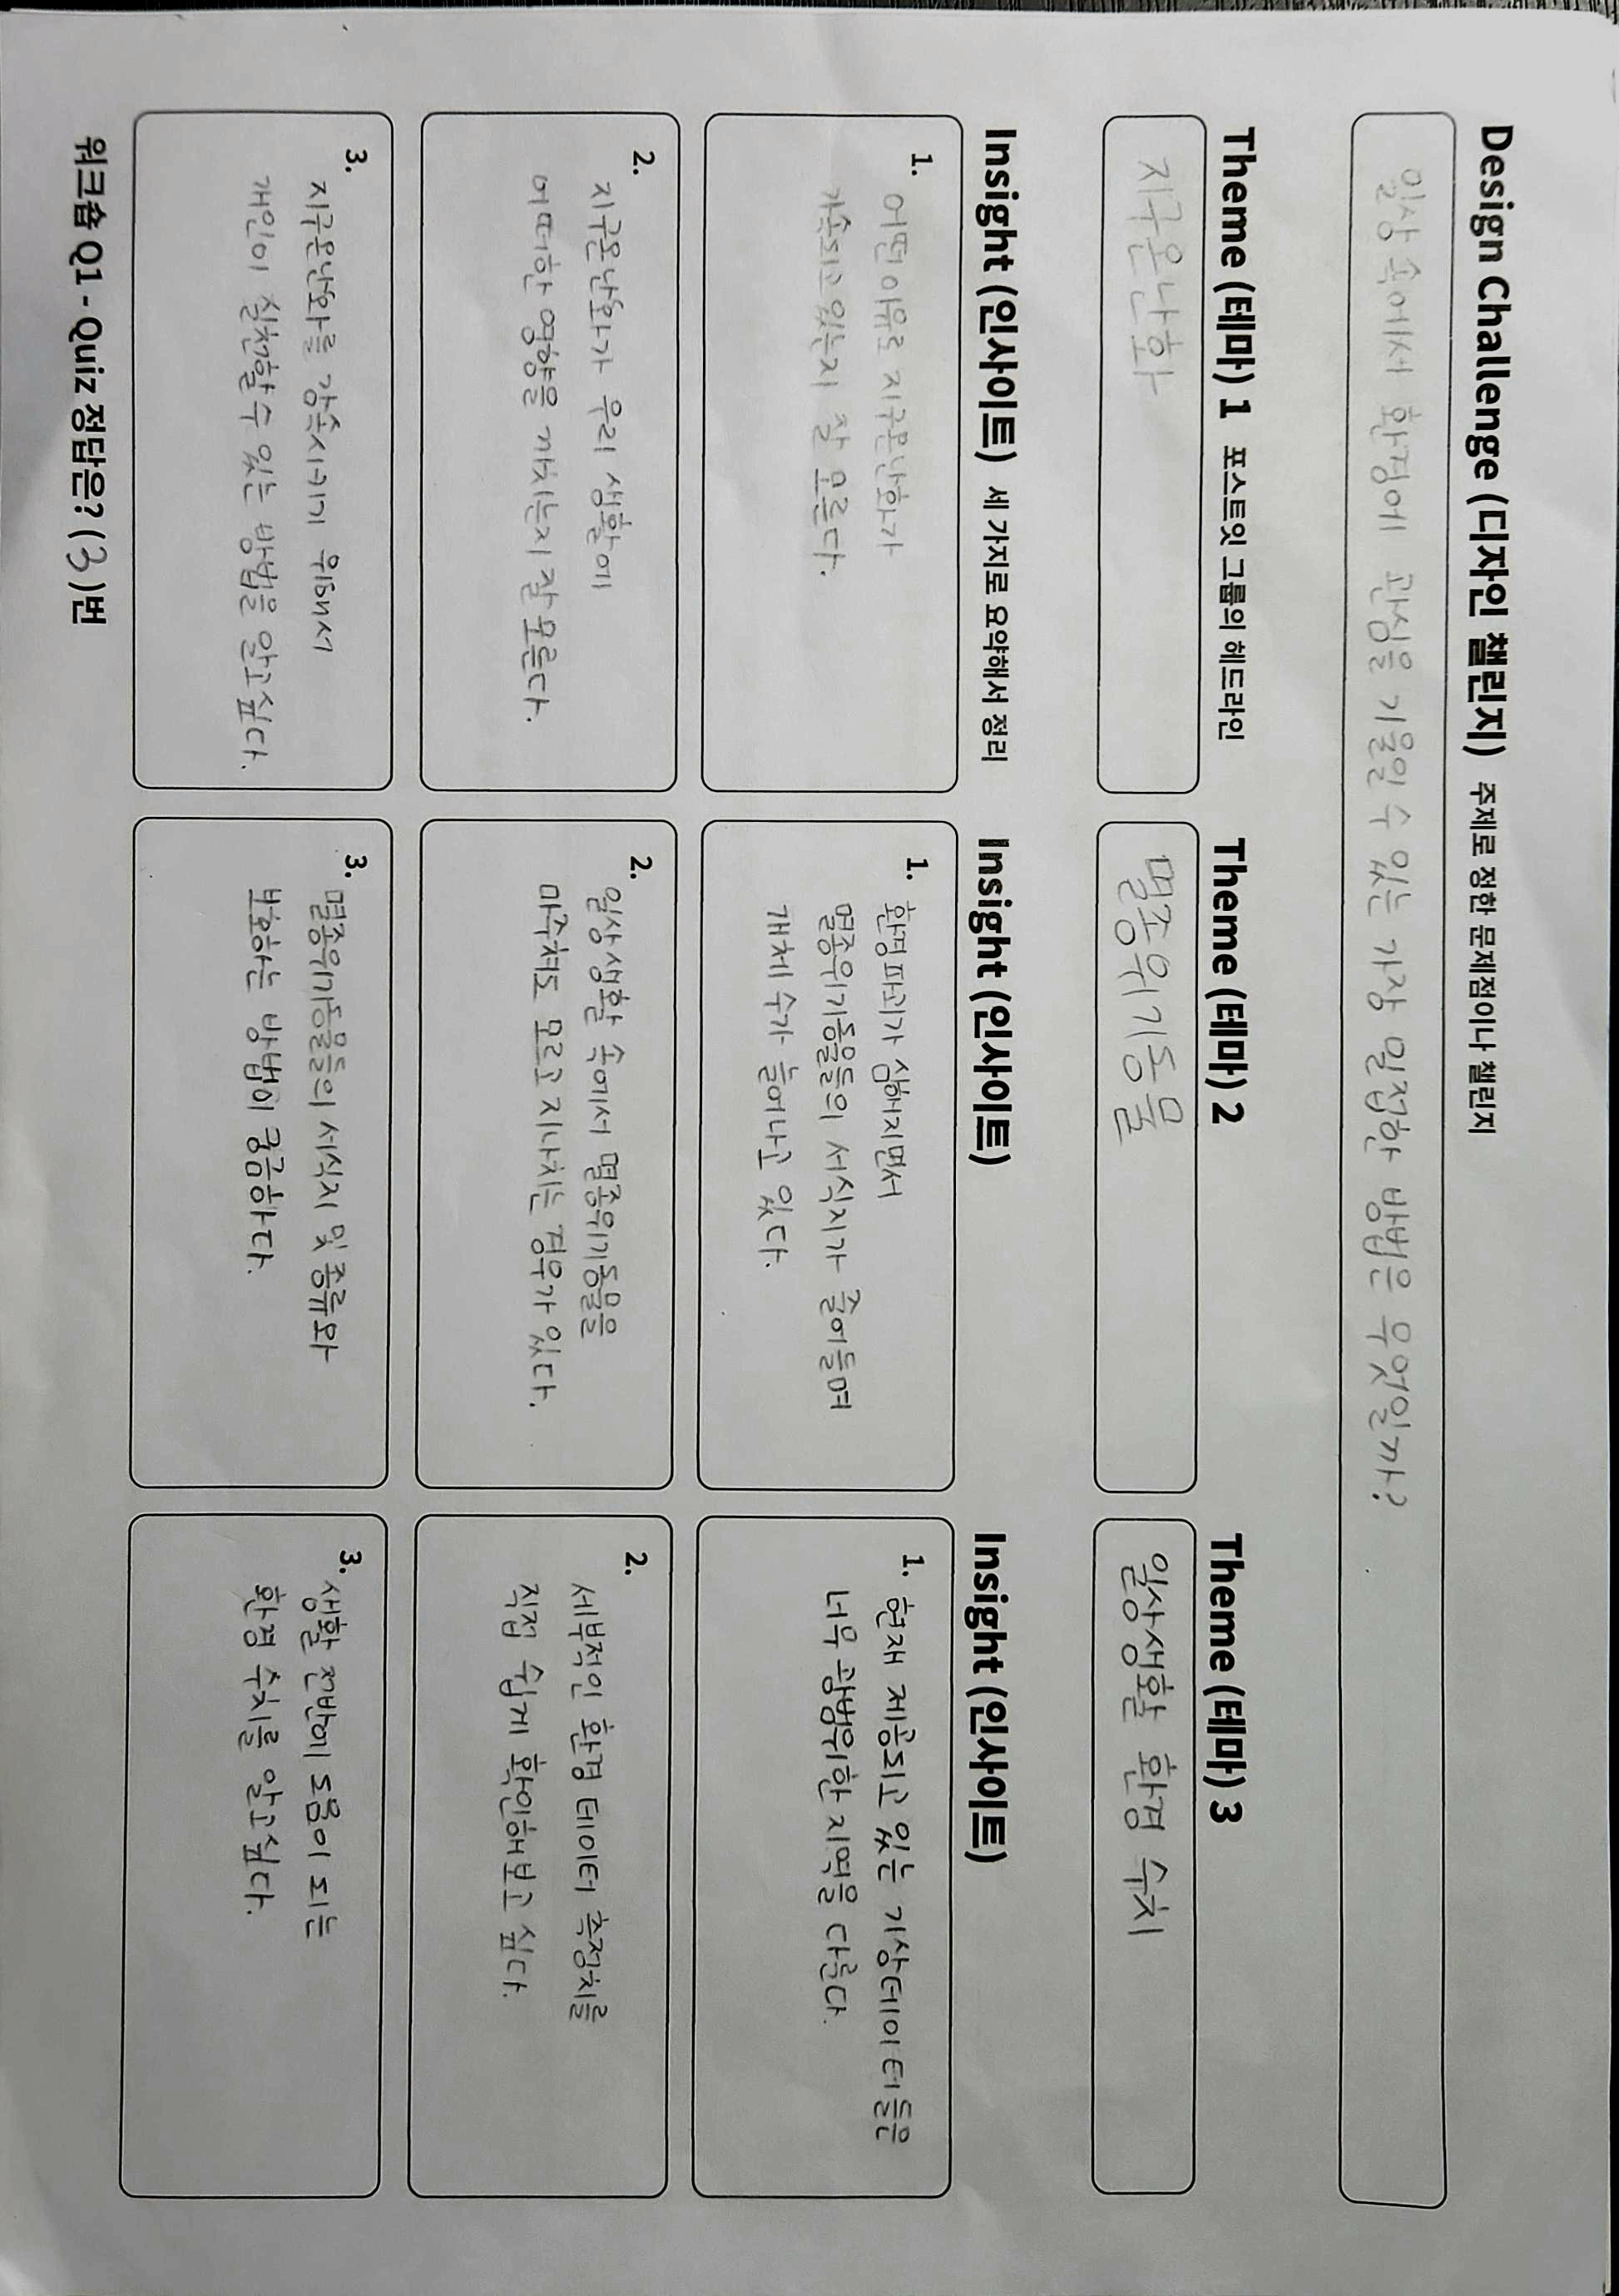 Design Challenge (디자인 챌린지) 주제로 정한 문제점이나 챌린지
일상 속에서 환경에 관심을 기울일 수 있는 가장 밀접한 방법은 무엇일까?
Theme (테마) 1 포스트잇 그룹의 헤드라인
지구온난화
Insight (인사이트) 세 가지로 요약해서 정리
1. 어떤 이유로 지구온난화가
가속되고 있는지 잘 모른다.
2. 지구온난화가 우리 생활에
어떠한 영향을 끼치는지 잘 모른다.
3. 지구온난화를 감속시키기 위해서
개인이 실천할 수 있는 방법을 알고싶다.
Theme (테마) 2
멸종위기동물
Insight (인사이트)
1. 환경파괴가 심해지면서
멸종위기동물들의 서식지가 줄어들며
개체 수가 늘어나고 있다.
2. 일상생활 속에서 멸종위기동물을
마주쳐도 모르고 지나치는 경우가 있다.
3. 멸종위기동물들의 서식지 및 종류와
보호하는 방법이 궁금하다.
Theme (테마) 3
일상생활 환경 수치
Insight (인사이트)
1. 현재 제공되고 있는 기상데이터들은
너무 광범위한 지역을 다룬다.
2. 세부적인 환경 데이터 측정치를
직접 쉽게 확인해보고 싶다.
3. 생활 전반에 도움이 되는
환경 수치를 알고싶다.
워크숍 Q1 - Quiz 정답은? (3)번